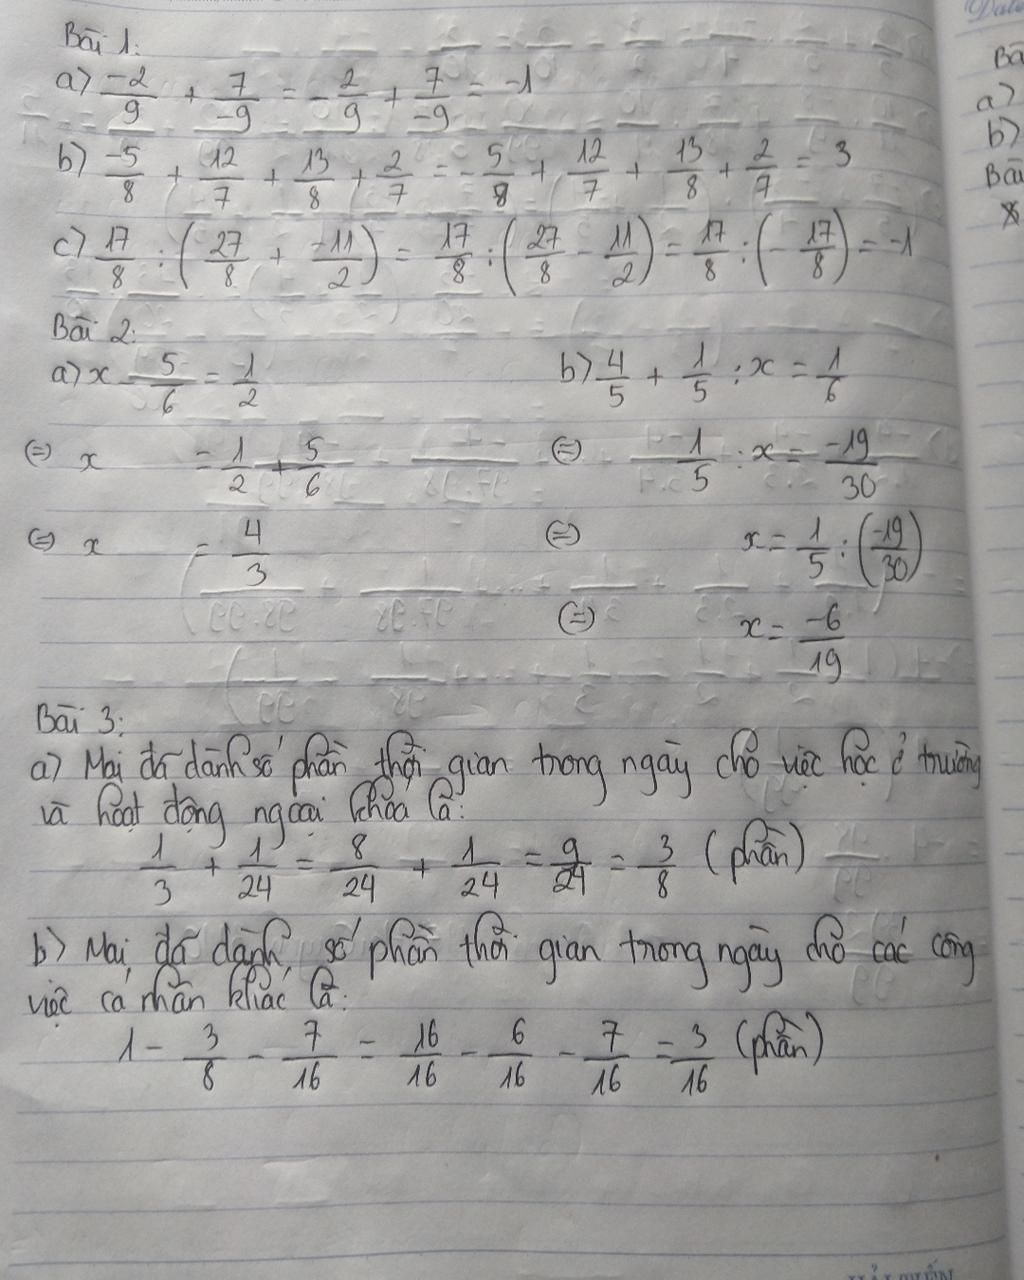 Date
Bài 1:
a) -2/9 + 7/-9 = -2/9 + 7/-9 = -1
b) -5/8 + 12/7 + 13/8 + 2/7 = -5/8 + 12/7 + 13/8 + 2/7 = 3
c) 17/8 : (27/8 + -11/2) = 17/8 : (27/8 - 11/2) = 17/8 : (-17/8) = -1
Bài 2:
a) x - 5/6 = 1/2 b) 4/5 + 1/5 : x = 1/6
(=) x = 1/2 + 5/6 (=) 1/5 : x = -19/30
(=) x = 4/3 (=) x = 1/5 : (-19/30)
(=) x = -6/19
Bài 3:
a) Mai đã dành số phần thời gian trong ngày cho việc học ở trường
và hoạt động ngoại khóa là:
1/3 + 1/24 = 8/24 + 1/24 = 9/24 = 3/8 (phần)
b) Mai đã dành số phần thời gian trong ngày cho các công
việc cá nhân khác là:
1 - 3/8 - 7/16 = 16/16 - 6/16 - 7/16 = 3/16 (phần)
a)
b)